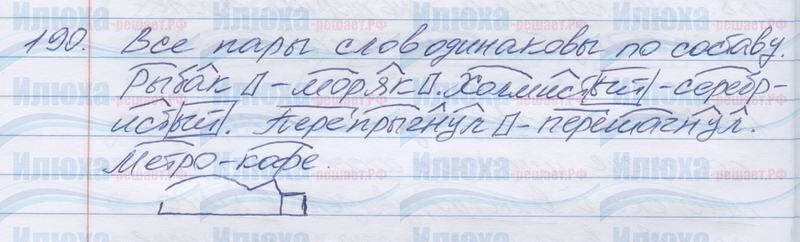 190. Все пары слов одинаковы по составу.
Рыбак - моряк. Холмистый - серебр-
истый. Перепрыгнул - перешагнул.
Метро - кафе.